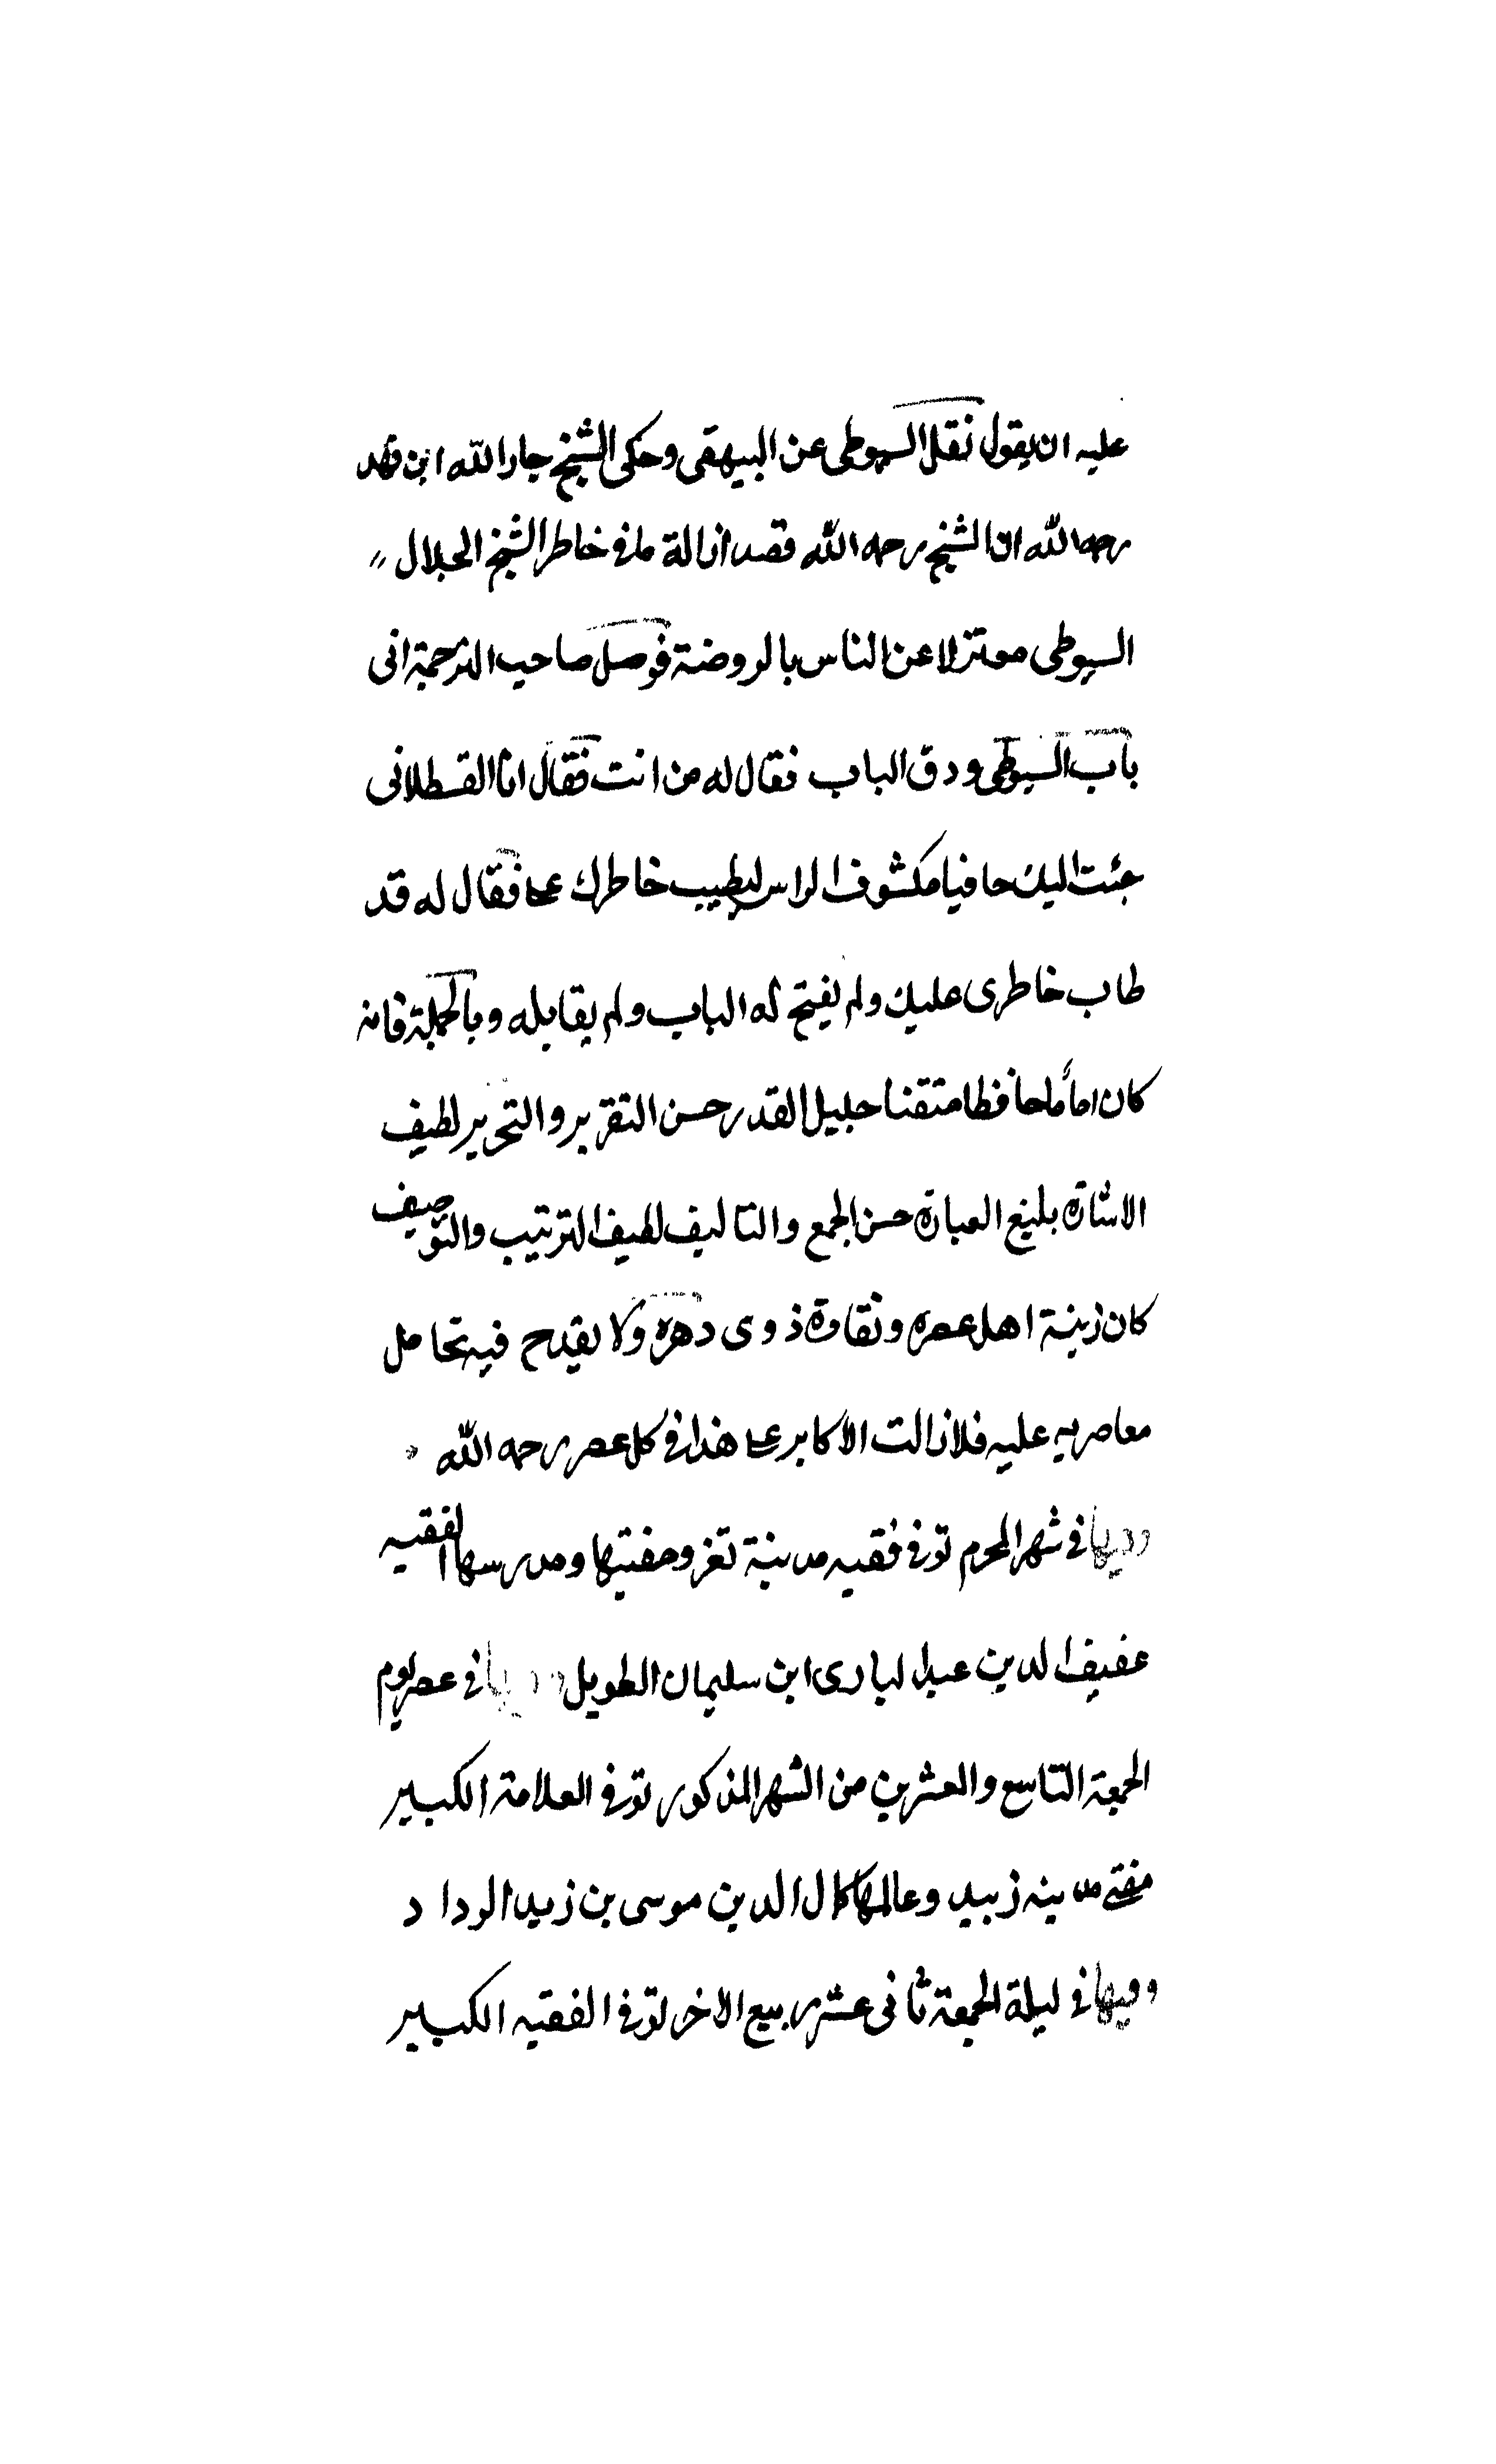 عليه ان يقول نقل السيوطى عن البيهقى وحكى الشيخ جار الله ابن فهد
رحمه الله ان الشيخ رحمه الله قصد ازالة ما فى خاطر الشيخ الجلال
السيوطى معتزلا عن الناس بالروضة فوصل صاحب الترجمة الى
باب السيوطى ودق الباب فقال له من انت فقال انا القسطلانى
جئت اليك حافيا مكشوف الراس ليطيب خاطرك علي فقال له قد
طاب خاطرى عليك ولم يفتح له الباب ولم يقابله وبالجملة فانه
كان اماما حافظا متقنا جليل القدر حسن التقرير والتحرير لطيف
الاشارة بليغ العبارة حسن الجمع والتاليف لطيف الترتيب والتوصيف
كان زينة اهل عصره ونقاوة ذوى دهره ولا يقدح فيه تحامل
معاصريه عليه فلا زالت الاكابر على هذا فى كل عصر رحمه الله
وفيها فى شهر المحرم توفى فقيه مدينة تعز ومفتيها ومدرسها الفقيه
عفيف الدين عبد البارى ابن سليمان الطويل وفيها فى عصر يوم
الجمعة التاسع والعشرين من الشهر المذكور توفى العلامة الكبير
مفتى مدينه زبيد وعالمها كمال الدين موسى بن زيد الرداد
وفيها فى ليلة الجمعة ثانى عشر ربيع الاخر توفى الفقيه الكبير